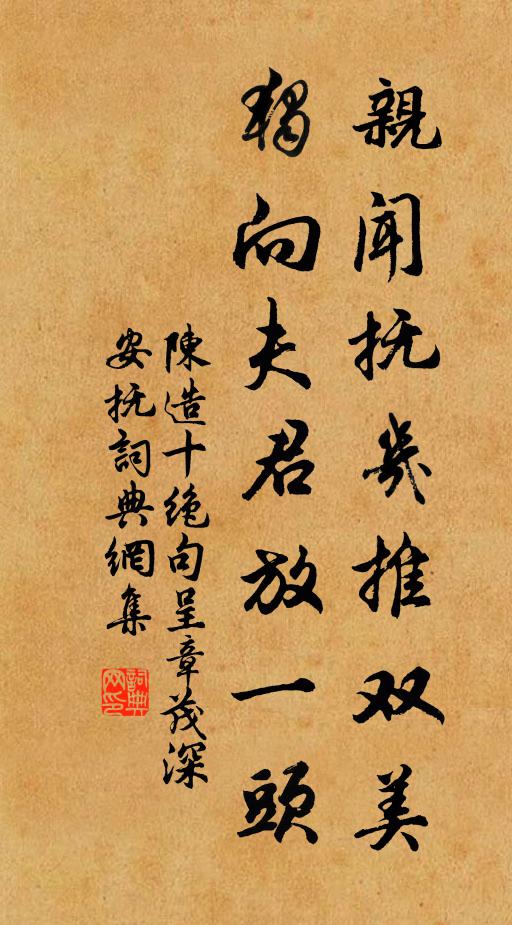 親闻抚幾推双美
獨向夫君放一頭
陳造十绝句呈章茂深
安抚詞典網集
詞典网印